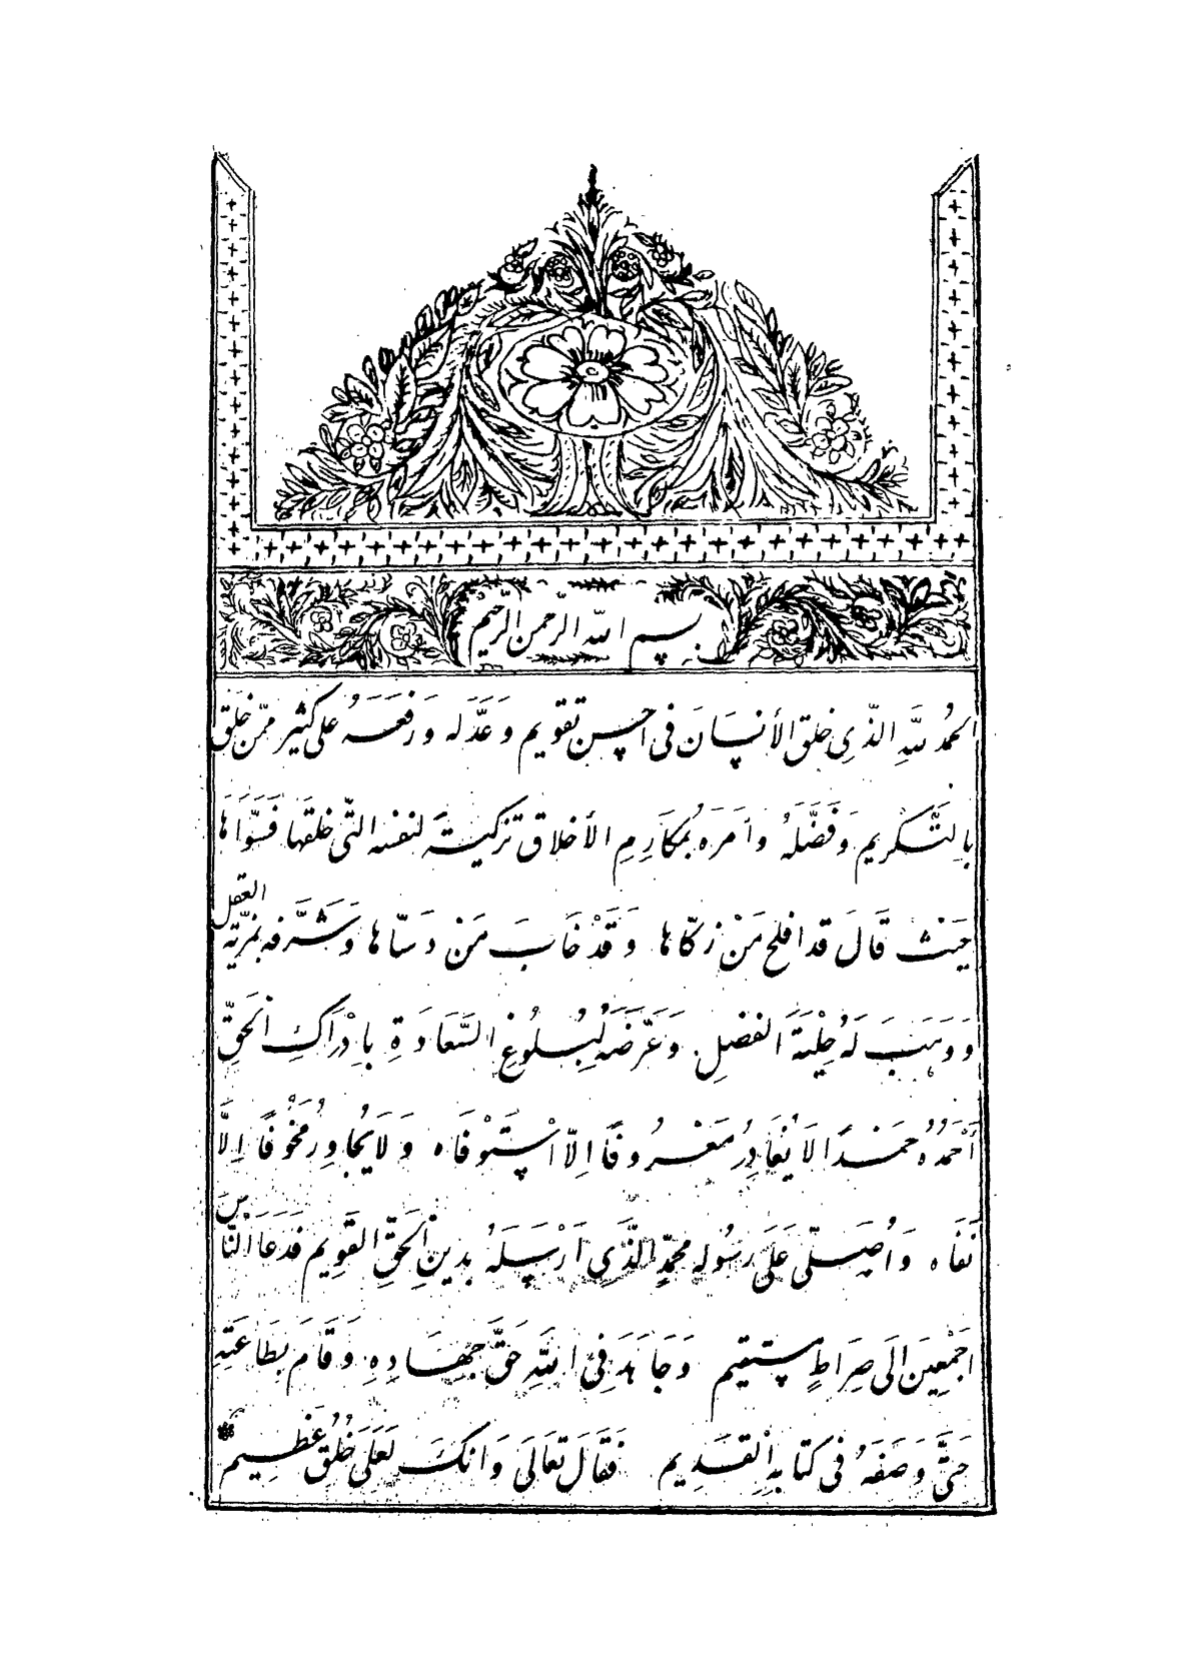 بسم الله الرحمن الرحيم
الحمد لله الذّى خلق الأنسَانَ فى احسن تقويم وَعَدَّله وَرفعَهُ على كثير ممّن خلق
بالتَّكريم وَفَضَّلهُ وأمَرَه بمَكَارِمِ الأخلاق تزكيةً لنفسه التّى خلقهَا فَسَوَّاهَا
حَيث قَالَ قد افلح مَنْ زكّاها وَقَدْ خَابَ مَنْ دَسّاها وَشَرَّفه بمزيّة العقل
وَوَهَبَ لَهُ حِليَةَ الفضلِ وَعَرَّضَهُ لِبُلُوغِ السَّعَادَةِ بِاِدْرَاكِ الحَقِّ
اَحْمَدُهُ حَمْدًا لاَ يُغَادِرُ مَعْرُوفًا اِلاّ اسْتَوْفَاه وَلاَ يُجَاوِرُ مَخُوفًا اِلاَّ
نَفَاه وَاُصَلّى عَلَى رَسُوله محمّدٍ الّذَى اَرْسَلَهُ بدينِ الحَقِّ القَوِيم فَدَعَا النَّاسَ
اَجْمَعِينَ اِلَى صِرَاطٍ مستقيم وَجَاهَدَ فِى اللهِ حَقَّ جِهَادِهِ وَقَامَ بطَاعَتِهِ
حَتَّى وَصَفَهُ فى كتابهِ القَدِيم فَقَالَ تعَالَى وَانكَ لَعَلَى خُلُق عَظِيم